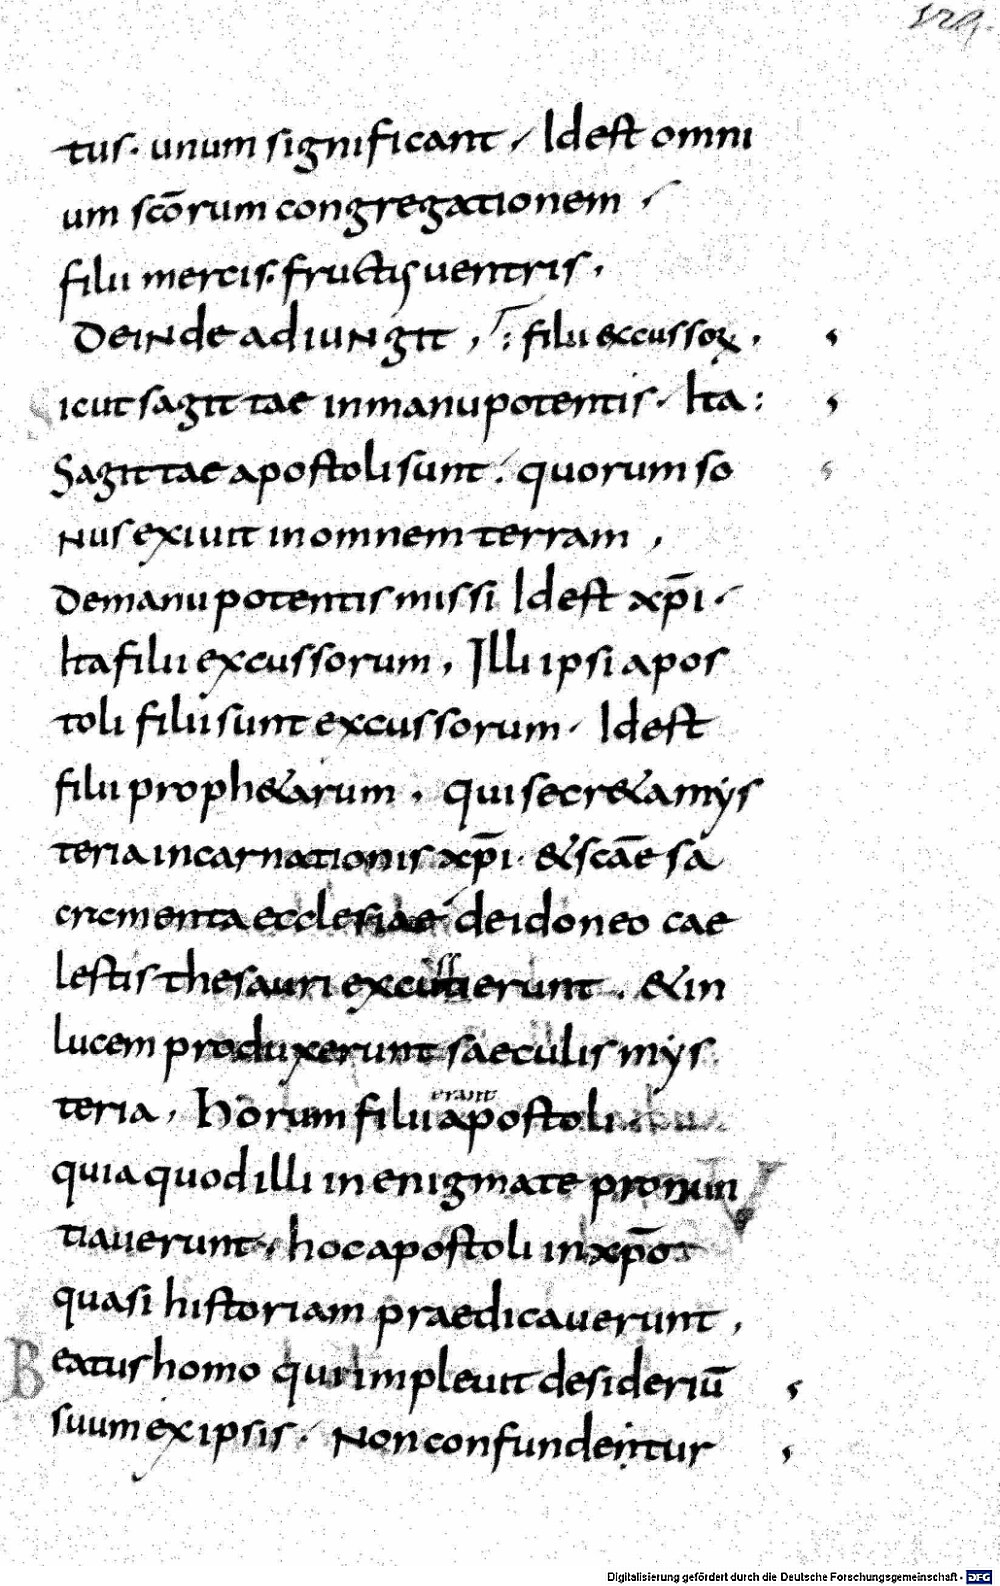 129.
tus. unum significant / Id est omni
um scōrum congregationem /
filii mercis. fructus uentris,
Deinde adiungit, : filii excussorꝝ.
Sicut sagittae in manu potentis. Ita:
Sagittae apostoli sunt. quorum so
nus exiuit in omnem terram,
De manu potentis missi Id est xp̄i.
Ita filii excussorum, Illi ipsi apos
toli filii sunt excussorum. Id est
filii proph&arum, qui secr&a mẏs
teria incarnationis xp̄i. & scāe sa
crementa ecclesiae de idoneo cae
lestis thesauri excutierunt. & in
ss
lucem produxerunt saeculis mẏs
teria, Horum filii apostoli
erant
quia quod illi in enigmate pronun
tiauerunt, hoc apostoli in xp̄o
quasi historiam praedicauerunt,
Beatus homo qui impleuit desideriū
suum ex ipsis. Non confundentur
Digitalisierung gefördert durch die Deutsche Forschungsgemeinschaft - DFG